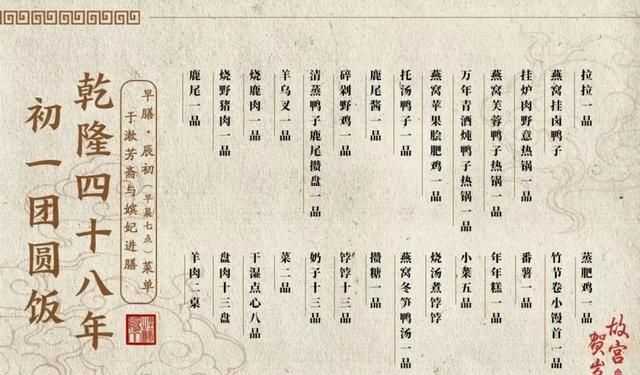 乾隆四十八年
初一团圆饭
早膳·辰初(早晨七点)菜单
于漱芳斋与嫔妃进膳
拉拉一品
燕窝挂卤鸭子
挂炉肉野意热锅一品
燕窝芙蓉鸭子热锅一品
万年青酒炖鸭子热锅一品
燕窝苹果脍肥鸡一品
托汤鸭子一品
鹿尾酱一品
碎剁野鸡一品
清蒸鸭子鹿尾攒盘一品
羊乌叉一品
烧鹿肉一品
烧野猪肉一品
鹿尾一品
蒸肥鸡一品
竹节卷小馒首一品
番薯一品
年年糕一品
小菜五品
烧汤煮饽饽
燕窝冬笋鸭汤一品
攒糖一品
饽饽十三品
奶子十三品
菜二品
干湿点心八品
盘肉十三盘
羊肉二桌
故宫
贺岁